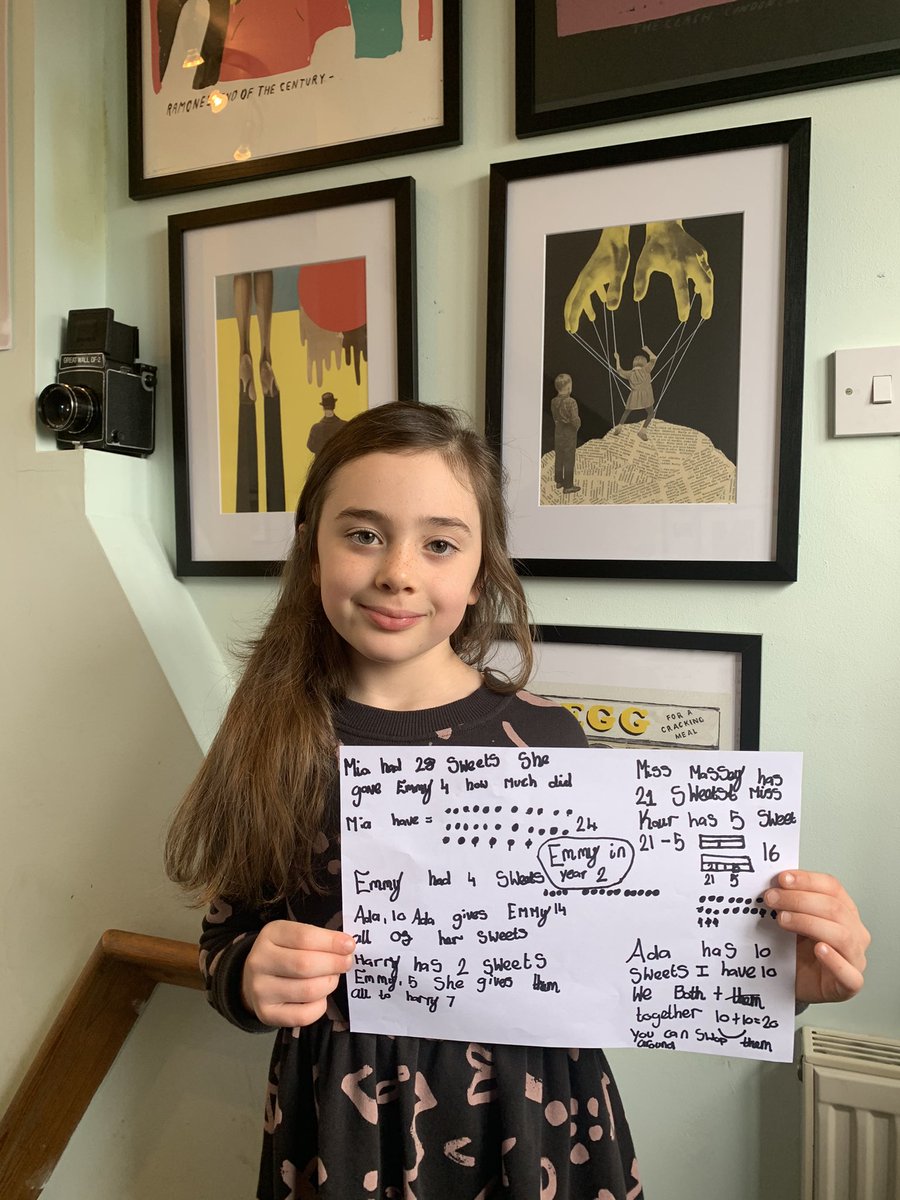 THE CLASH. LONDON
RAMONES END OF THE CENTURY -
GREAT WALL DF-2
EGG
FOR A
CRACKING
MEAL
Mia had 28 Sweets She
gave Emmy 4 how much did
Mia have = 24
Emmy in
year 2
Emmy had 4 Sweets
Ada, 10 Ada gives Emmy 14
all of her sweets
Harry has 2 sweets
Emmy, 5 She gives them
all to harry 7
Miss Massey has
21 Sweets Miss
Kaur has 5 Sweet
21-5 16
21 5
Ada has 10
Sweets I have 10
We Both + them
together 10+10=20
you can Swop them
around